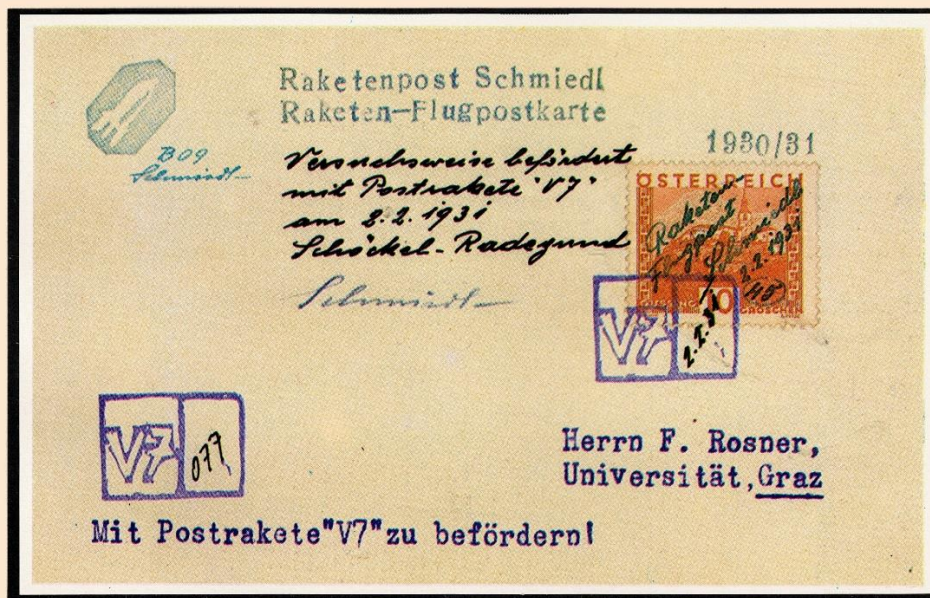 Raketenpost Schmiedl
Raketen-Flugpostkarte
1930/31
B09
Schmiedl
Versuchsweise befördert
mit Postrakete "V7"
am 2.2.1931
Schöckel-Radegund
Schmiedl
ÖSTERREICH
Raketen-
Flugpost
Schmiedl
2.2.1931
GÜSSING
10
GROSCHEN
V7
2.2.31
V7
077
Herrn F. Rosner,
Universität, Graz
Mit Postrakete"V7"zu befördern!